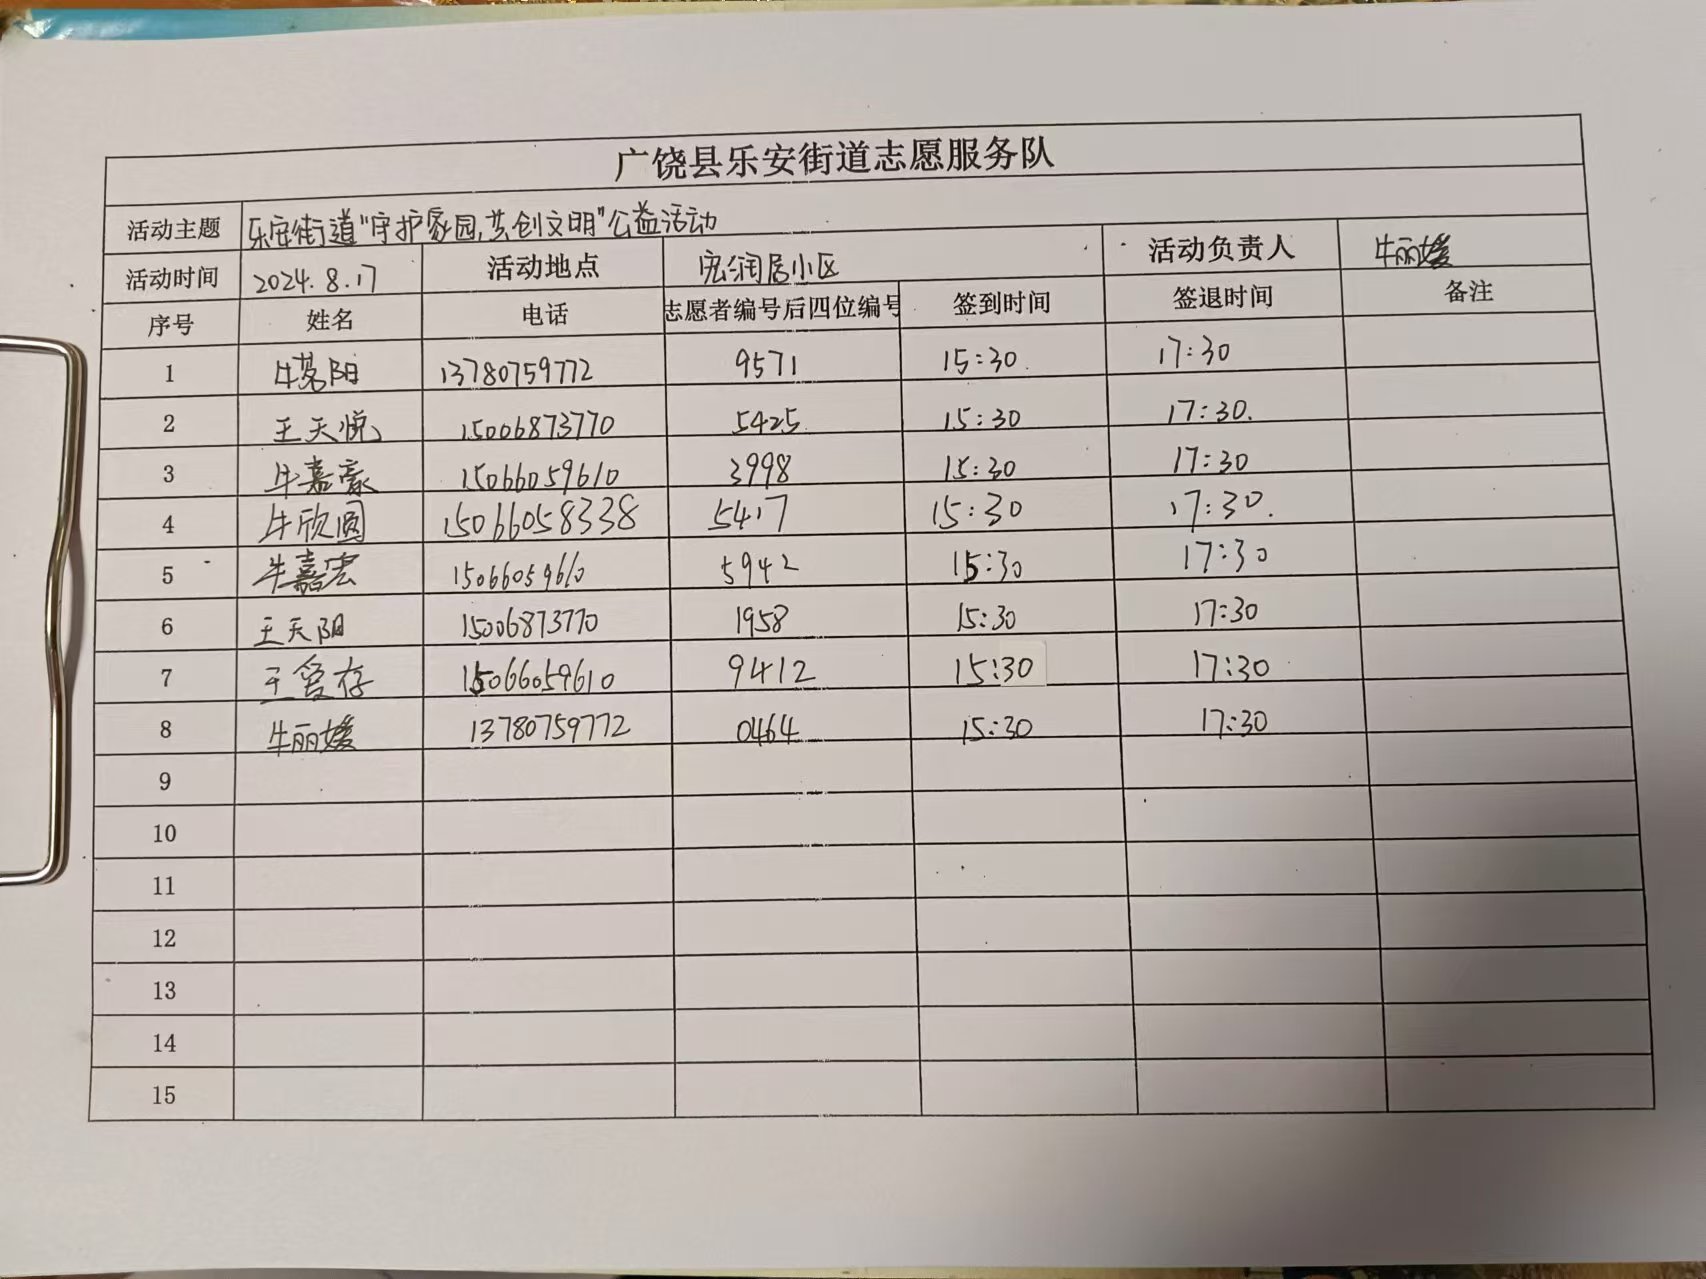 广饶县乐安街道志愿服务队
活动主题 乐安街道"守护家园,共创文明"公益活动
活动时间 2024.8.17 活动地点 宏润居小区 活动负责人 牛丽媛
序号 姓名 电话 志愿者编号后四位编号 签到时间 签退时间 备注
1 牛茗阳 13780759772 9571 15:30 17:30
2 王天悦 15006873770 5425 15:30 17:30.
3 牛嘉豪 15066059610 3998 15:30 17:30
4 牛欣圆 15066058338 5417 15:30 17:30.
5 牛嘉宏 15066059610 5942 15:30 17:30
6 王天阳 15006873770 1958 15:30 17:30
7 王存 15066059610 9412 15:30 17:30
8 牛丽媛 13780759772 0464 15:30 17:30
9
10
11
12
13
14
15